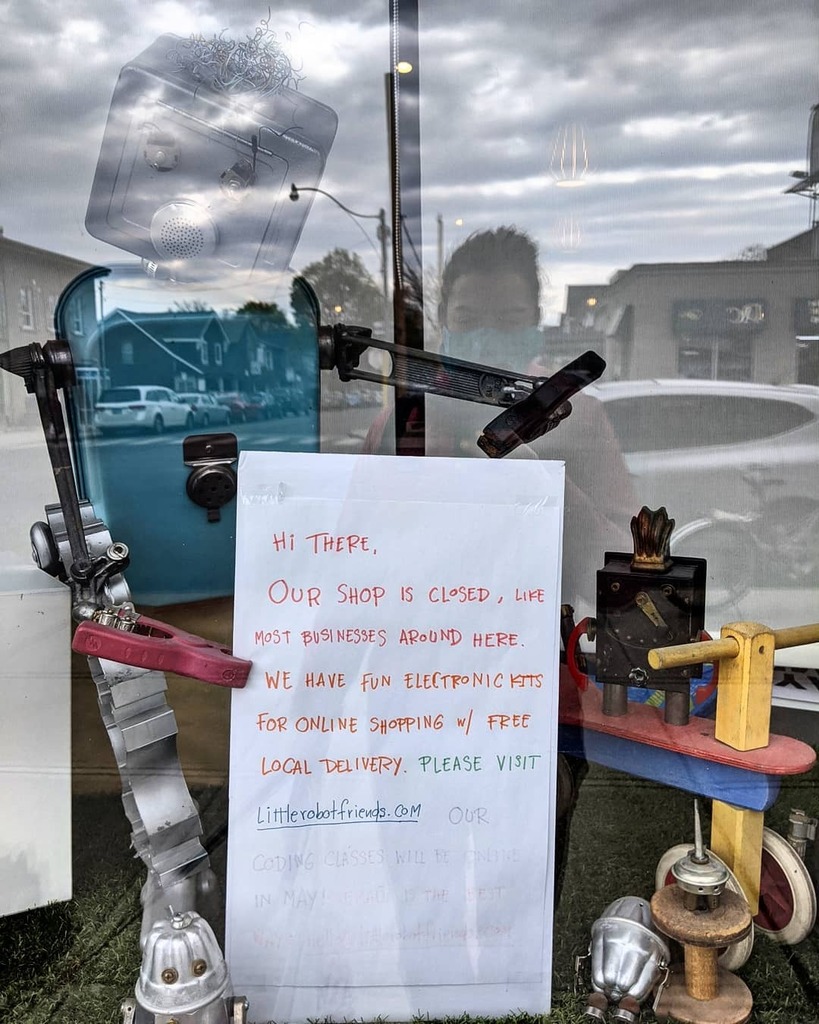 HI THERE,
OUR SHOP IS CLOSED, LIKE
MOST BUSINESSES AROUND HERE.
WE HAVE FUN ELECTRONIC KITS
FOR ONLINE SHOPPING W/ FREE
LOCAL DELIVERY. PLEASE VISIT
Littlerobotfriends.com OUR
CODING CLASSES WILL BE ONLINE
IN MAY! EMAIL IS THE BEST